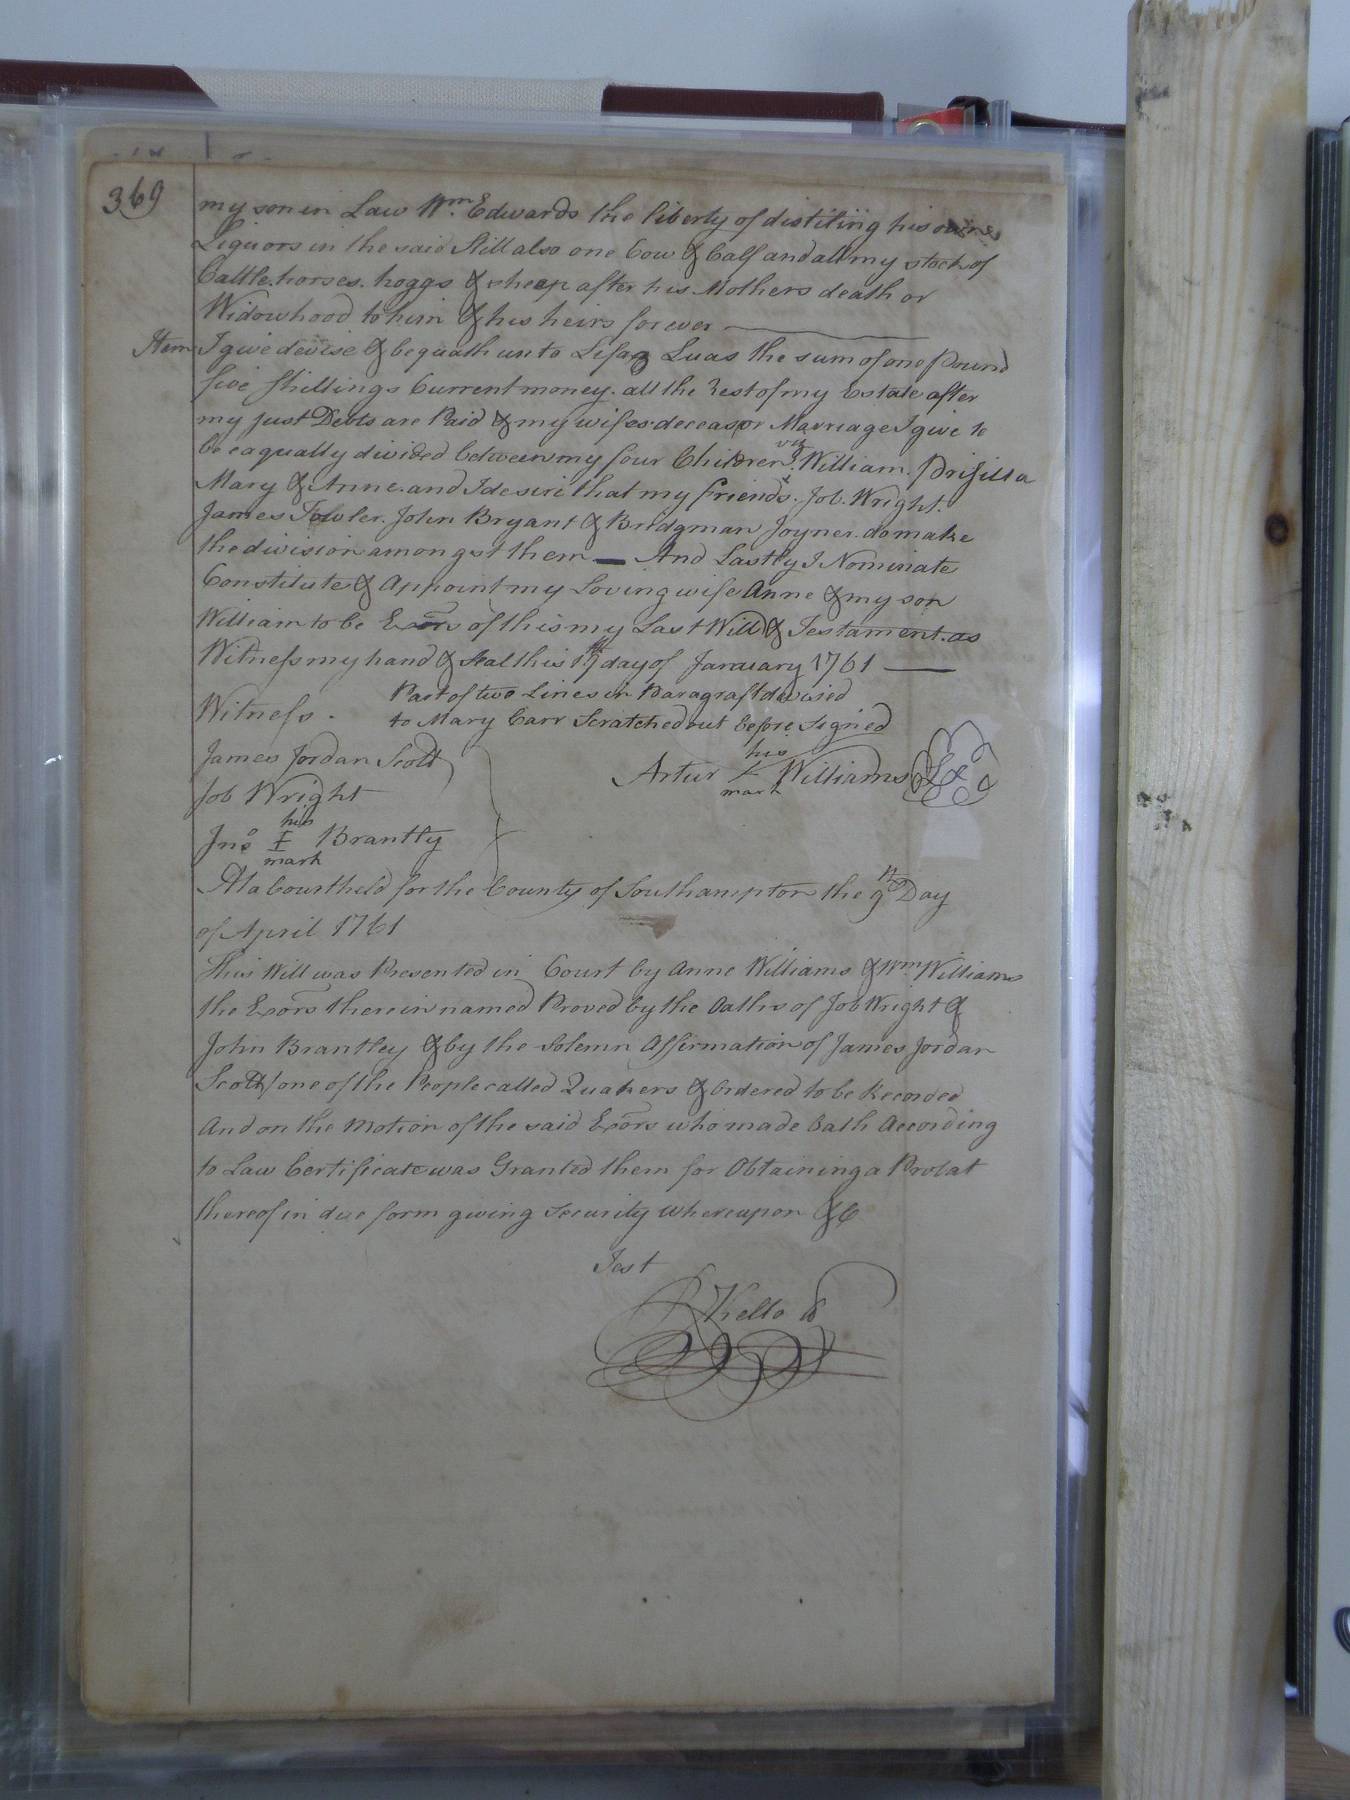 369
my son in Law Wm. Edwards the liberty of distiling his own
Liquors in the said Still also one Cow & Calf and all my stock of
Cattle. horses. hoggs & sheep after his Mothers death or
Widowhood to him & his heirs forever
Item I give devise & bequath unto Luas the sum of one pound
five shillings Current money. all the Rest of my Estate after
my just Debts are Paid & my wifes deceas or Marriage I give to
be eaqually divided between my four Children viz. William. Prisilla
Mary & Anne. and I desire that my friends. Job. Wright.
James Fowler. John Bryant & Bridgman Joyner. do make
the division amongst them — And Lastly I Nominate
Constitute & Appoint my Loving wife Anne & my son
William to be Exors of this my Last Will & Testament. as
Witness my hand & Seal this 17th day of January 1761 —
Part of two Lines in Paragraft devised
Witness. to Mary Carr Scratched out before Signed
James Jordan Scott
his
Artur Williams LS
mark
Job Wright
his
Jno. I Brantly
mark
At a Court held for the County of Southampton the 9th Day
of April 1761
This Will was Presented in Court by Anne Williams & Wm Williams
the Exors therein named Proved by the Oaths of Job Wright &
John Brantley & by the Solemn Affirmation of James Jordan
Scott/one of the People called Quakers & Ordered to be Recorded
And on the Motion of the said Exors who made Oath According
to Law Certificate was Granted them for Obtaining a Probat
thereof in due form giving Security whereupon &C
Test
R Kello